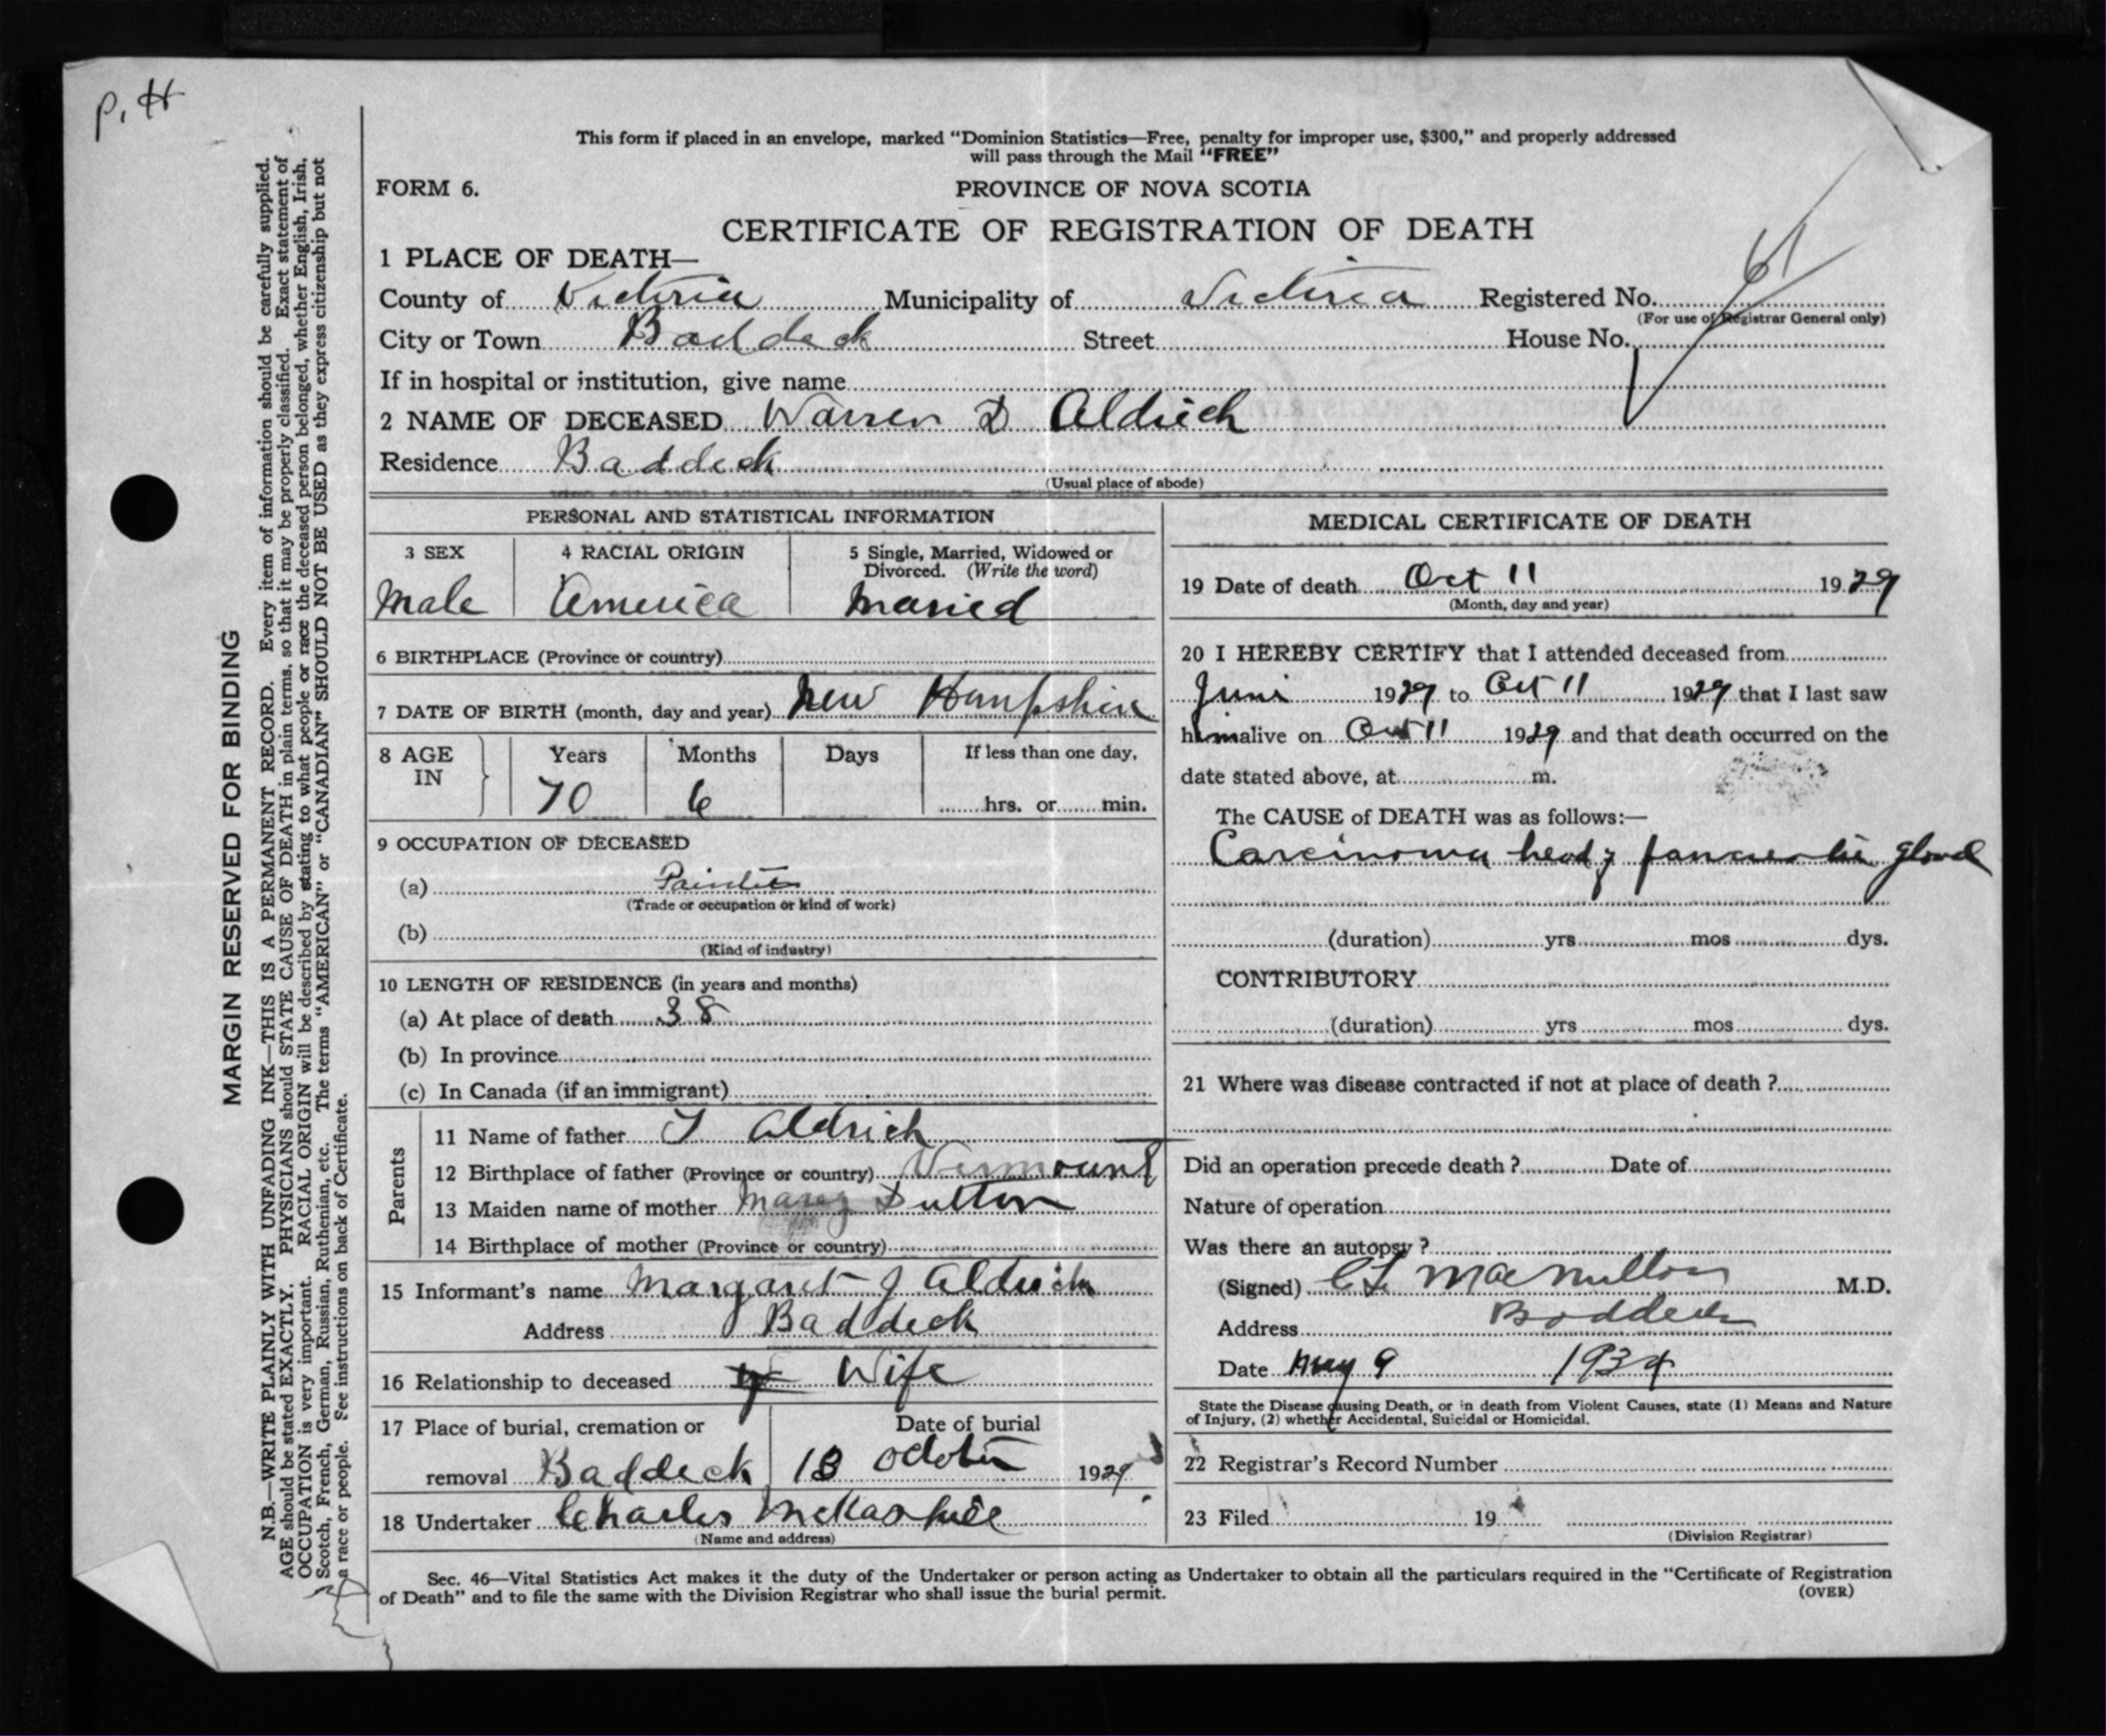 P. H
This form if placed in an envelope, marked "Dominion Statistics—Free, penalty for improper use, $300," and properly addressed
will pass through the Mail "FREE"
FORM 6.
PROVINCE OF NOVA SCOTIA
CERTIFICATE OF REGISTRATION OF DEATH
1 PLACE OF DEATH—
County of Victoria Municipality of Victoria Registered No.
61
(For use of Registrar General only)
City or Town Baddeck Street House No.
If in hospital or institution, give name
2 NAME OF DECEASED Warren D Aldrich
Residence Baddeck
(Usual place of abode)
PERSONAL AND STATISTICAL INFORMATION
3 SEX 4 RACIAL ORIGIN 5 Single, Married, Widowed or
Divorced. (Write the word)
Male America Married
6 BIRTHPLACE (Province or country)
7 DATE OF BIRTH (month, day and year) New Hampshire
8 AGE IN Years Months Days If less than one day,
70 6 hrs. or min.
9 OCCUPATION OF DECEASED
(a) Painter
(Trade or occupation or kind of work)
(b)
(Kind of industry)
10 LENGTH OF RESIDENCE (in years and months)
(a) At place of death 38
(b) In province
(c) In Canada (if an immigrant)
Parents
11 Name of father T Aldrich
12 Birthplace of father (Province or country) Vermount
13 Maiden name of mother Mary Dutton
14 Birthplace of mother (Province or country)
15 Informant's name Margaret J Aldrich
Address Baddeck
16 Relationship to deceased Wife
17 Place of burial, cremation or Date of burial
removal Baddeck 13 October 1929
18 Undertaker Charles McKaskill
(Name and address)
MEDICAL CERTIFICATE OF DEATH
19 Date of death Oct 11 1929
(Month, day and year)
20 I HEREBY CERTIFY that I attended deceased from
June 1929 to Oct 11 1929 that I last saw
him alive on Oct 11 1929 and that death occurred on the
date stated above, at m.
The CAUSE of DEATH was as follows:—
Carcinoma head of pancreatic gland
(duration) yrs mos dys.
CONTRIBUTORY
(duration) yrs mos dys.
21 Where was disease contracted if not at place of death ?
Did an operation precede death ? Date of
Nature of operation
Was there an autopsy ?
(Signed) C L MacMillan M.D.
Address Baddeck
Date May 9 1934
State the Disease causing Death, or in death from Violent Causes, state (1) Means and Nature
of Injury, (2) whether Accidental, Suicidal or Homicidal.
22 Registrar's Record Number
23 Filed 19
(Division Registrar)
Sec. 46—Vital Statistics Act makes it the duty of the Undertaker or person acting as Undertaker to obtain all the particulars required in the "Certificate of Registration
of Death" and to file the same with the Division Registrar who shall issue the burial permit. (OVER)
MARGIN RESERVED FOR BINDING
N.B.—WRITE PLAINLY WITH UNFADING INK—THIS IS A PERMANENT RECORD. Every item of information should be carefully supplied.
AGE should be stated EXACTLY. PHYSICIANS should STATE CAUSE OF DEATH in plain terms, so that it may be properly classified. Exact statement of
OCCUPATION is very important. RACIAL ORIGIN will be described by stating to what people or race the deceased person belonged, whether English, Irish,
Scotch, French, German, Russian, Ruthenian, etc. The terms "AMERICAN" or "CANADIAN" SHOULD NOT BE USED as they express citizenship but not
a race or people. See instructions on back of Certificate.